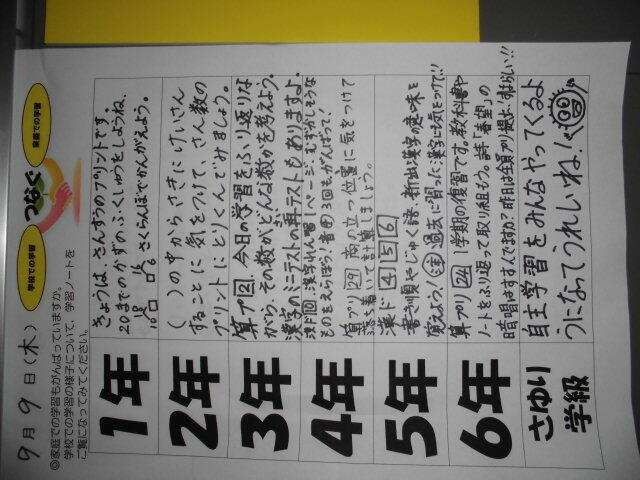 9月9日(木)
学校での学習
つなぐ
家庭での学習
◎家庭での学習もがんばっていますか。
学校での学習の様子について、学習ノートを
ご覧になってみてください。
1年
きょうは、さんすうのプリントです。
20までのかずのふくしゅうをしようね。
さくらんぼでかんがえよう。
2年
( )の中からさきにけいさん
することに気をつけて、さん数の
プリントにとりくんでみましょう。
3年
算プ 今日の学習をふり返りな
がら、その数がどんな数かを考えよう。
漢字のミニテストの再テストもありますよ。
4年
漢ド10 漢字れん習1ページ むずかしそうな
ものをえらぼう! 音回3回もがんばって!
算プリ29 商の立つ位置に気をつけて
落ち着いて計算しましょう。
5年
漢ド456
書き順やじゅく語、新出漢字の意味を
覚えよう! 過去に習った漢字に気をつけて!!
6年
算プリ24 1学期の復習です。教科書や
ノートをふり返って取り組もう。詩「春望」の
暗唱はすすんでますか?昨日は全員プリ提出!すばらしい!!
さゆり
学級
自主学習をみんなやってくるよ
うになってうれしいね!